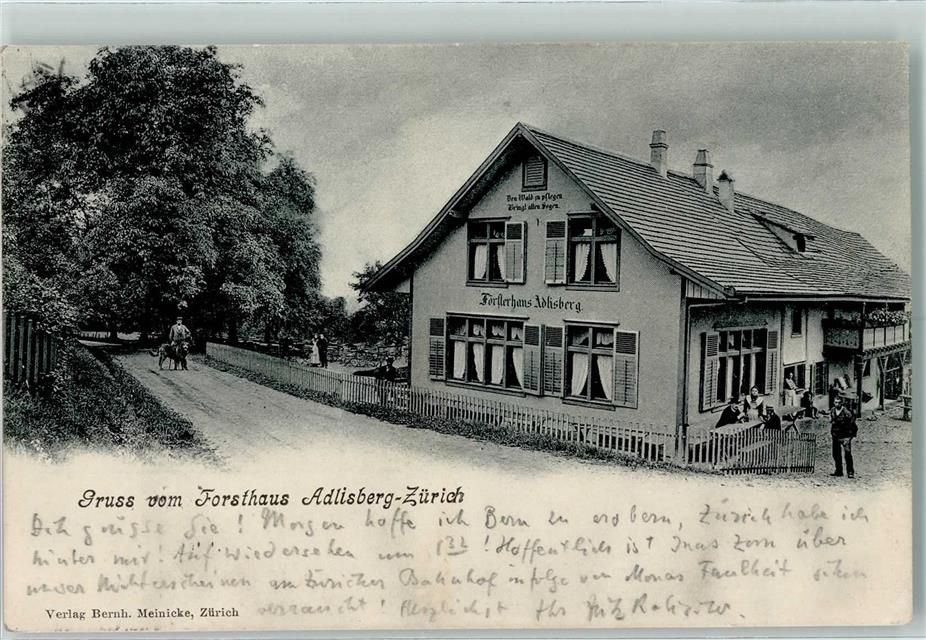 Den Wald zu pflegen
Bringt allen Segen.
Försterhaus Adlisberg.
Gruss vom Forsthaus Adlisberg-Zürich
Ich grüsse Sie! Morgen hoffe ich Bern zu erobern, Zürich habe ich
hinter mir! Auf wiedersehen um 1 ! Hoffentlich ist Zorn über
unser Nichterscheinen am Zürcher Bahnhof infolge von Faulheit schon
verrauscht! Herzlichst Ihr Fritz
Verlag Bernh. Meinicke, Zürich